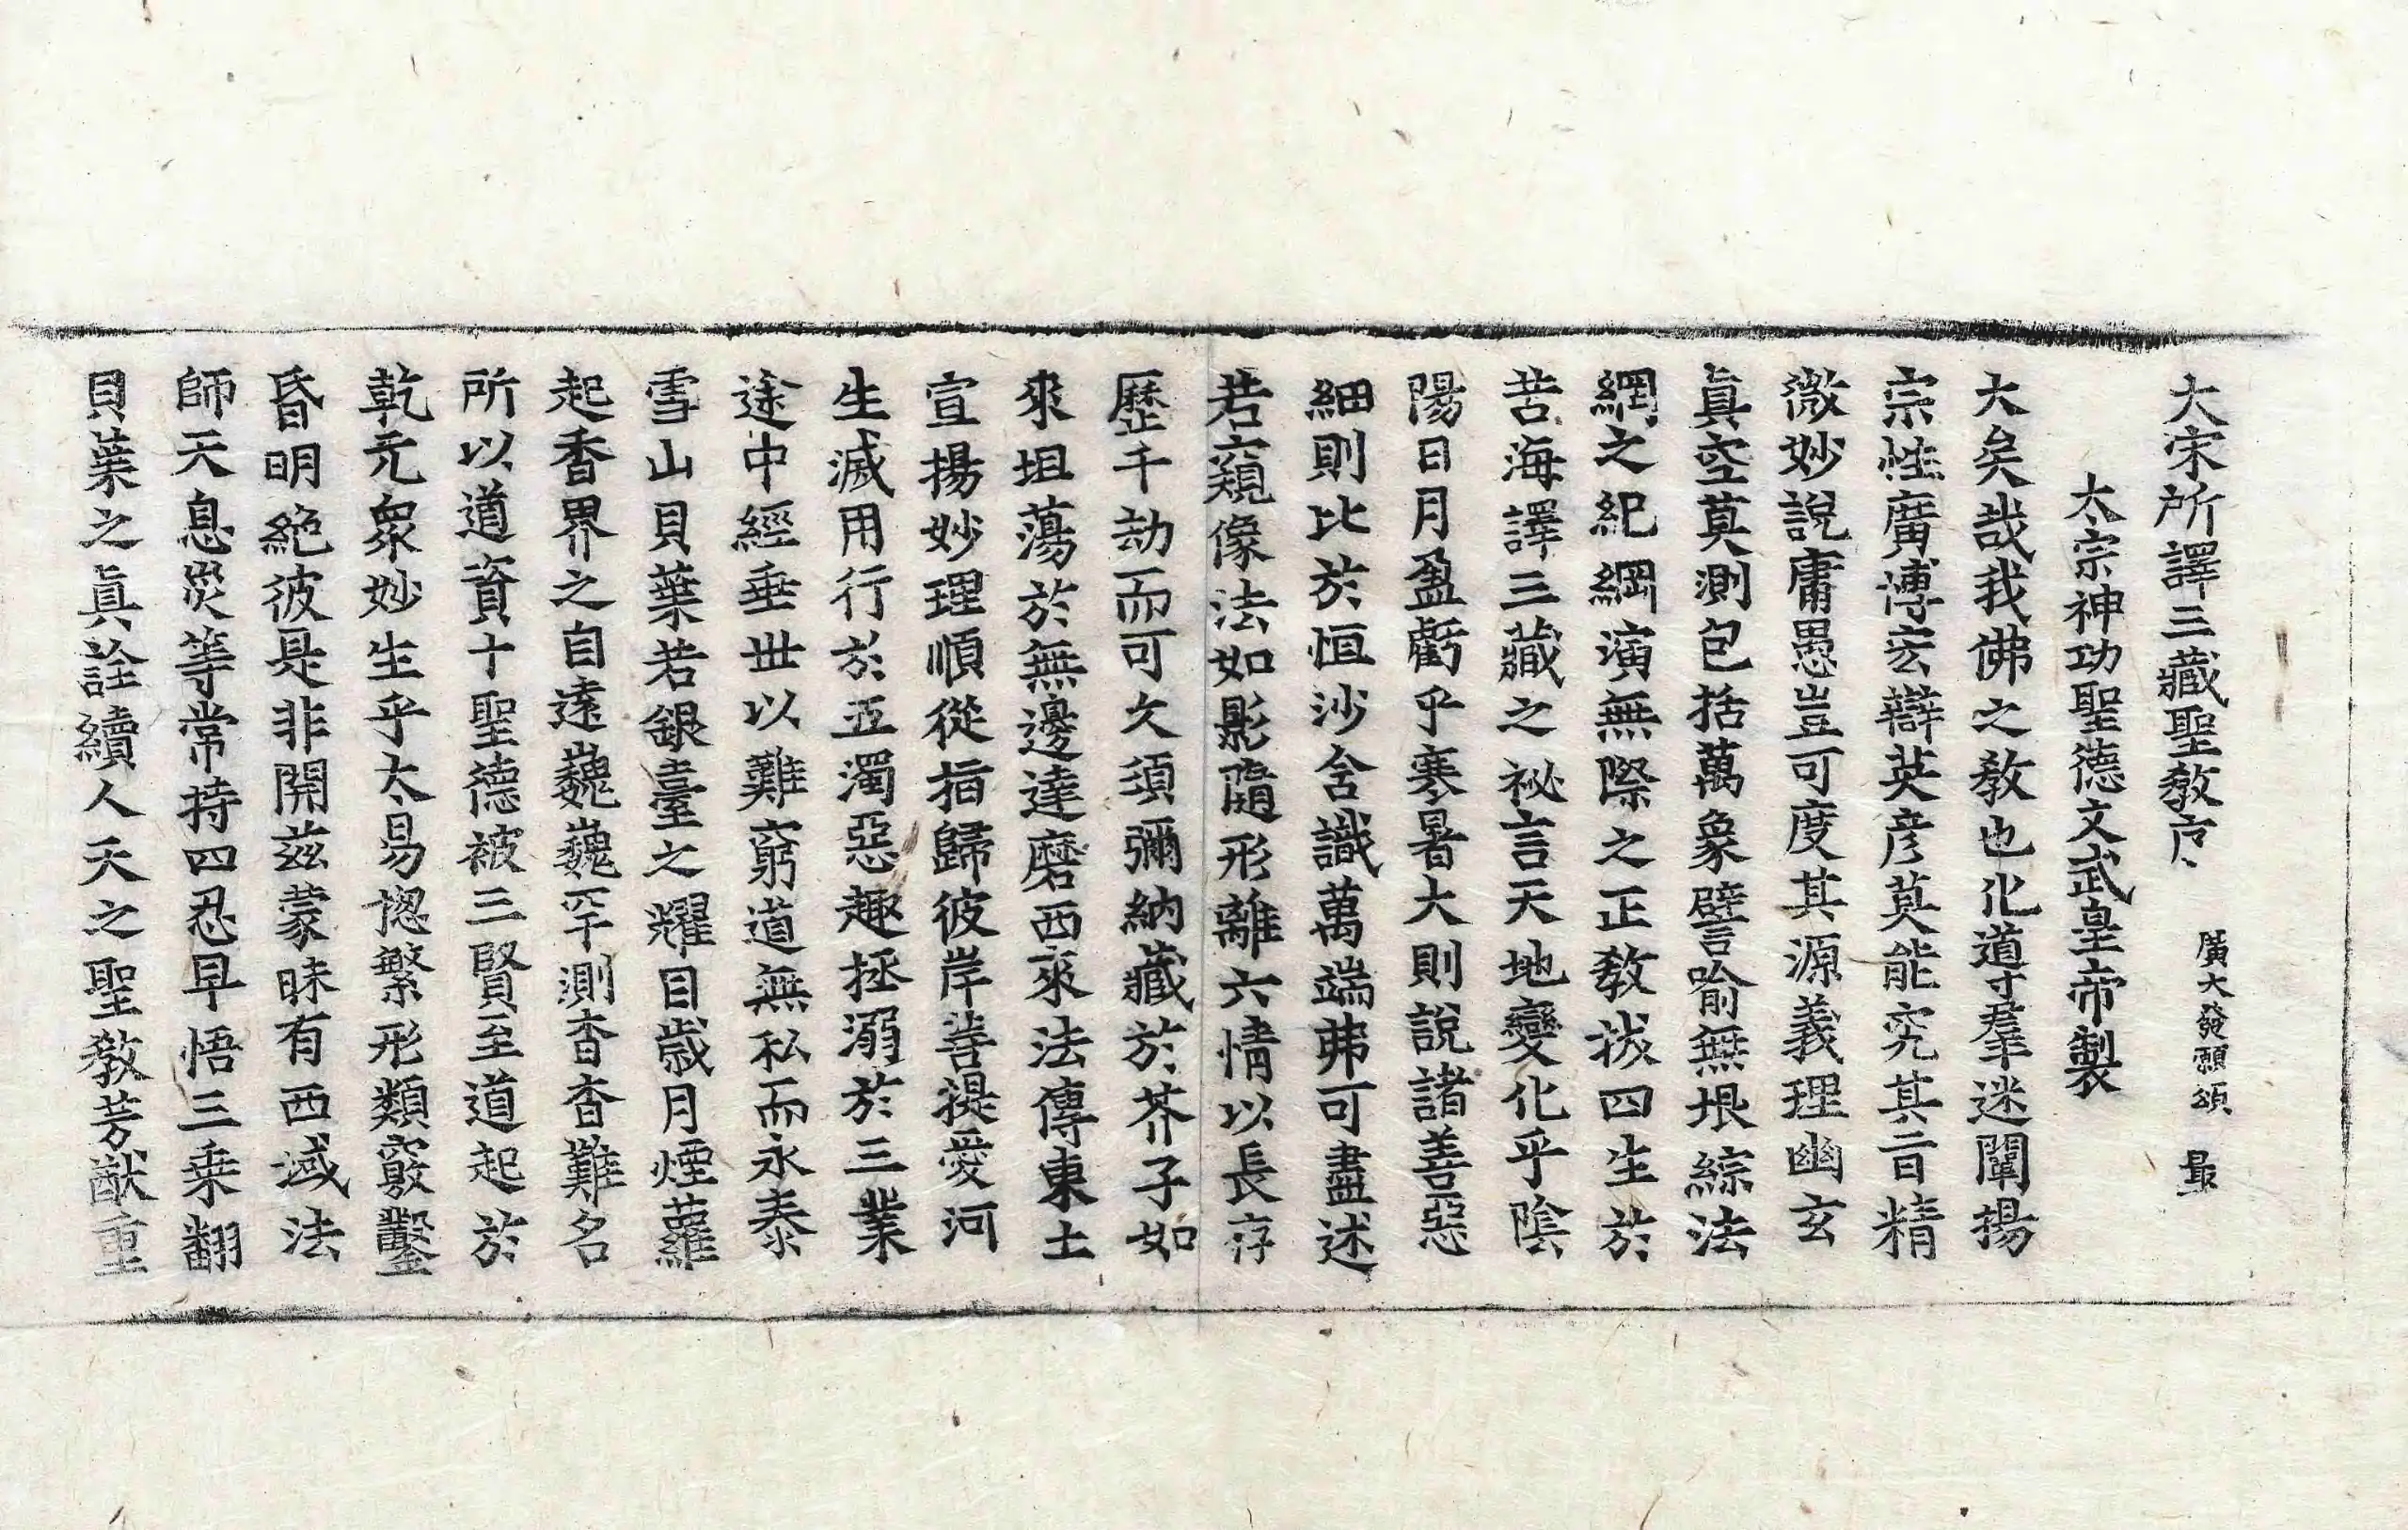 大宋所譯三藏聖教序 廣大發願頌 最
太宗神功聖德文武皇帝製
大矣哉我佛之教也化導羣迷闡揚
宗性廣博宏辯英彦莫能究其旨精
微妙說庸愚豈可度其源義理幽玄
眞空莫測包括萬象譬喻無垠綜法
網之紀綱演無際之正教拔四生於
苦海譯三藏之祕言天地變化乎陰
陽日月盈虧乎寒暑大則說諸善惡
細則比於恒沙含識萬端弗可盡述
若窺像法如影隨形離六情以長存
歷千劫而可久須彌納藏於芥子如
來坦蕩於無邊達磨西來法傳東土
宣揚妙理順從指歸彼岸菩提愛河
生滅用行於五濁惡趣拯溺於三業
途中經垂世以難窮道無私而永泰
雪山貝葉若銀臺之耀目歲月煙蘿
起香界之自遠巍巍罕測杳杳難名
所以道資十聖德被三賢至道起於
乾元衆妙生乎太易揔繁形類竅鑿
昏明絶彼是非開兹蒙昧有西域法
師天息災等常持四忍早悟三乘翻
貝葉之眞詮續人天之聖教芳猷重